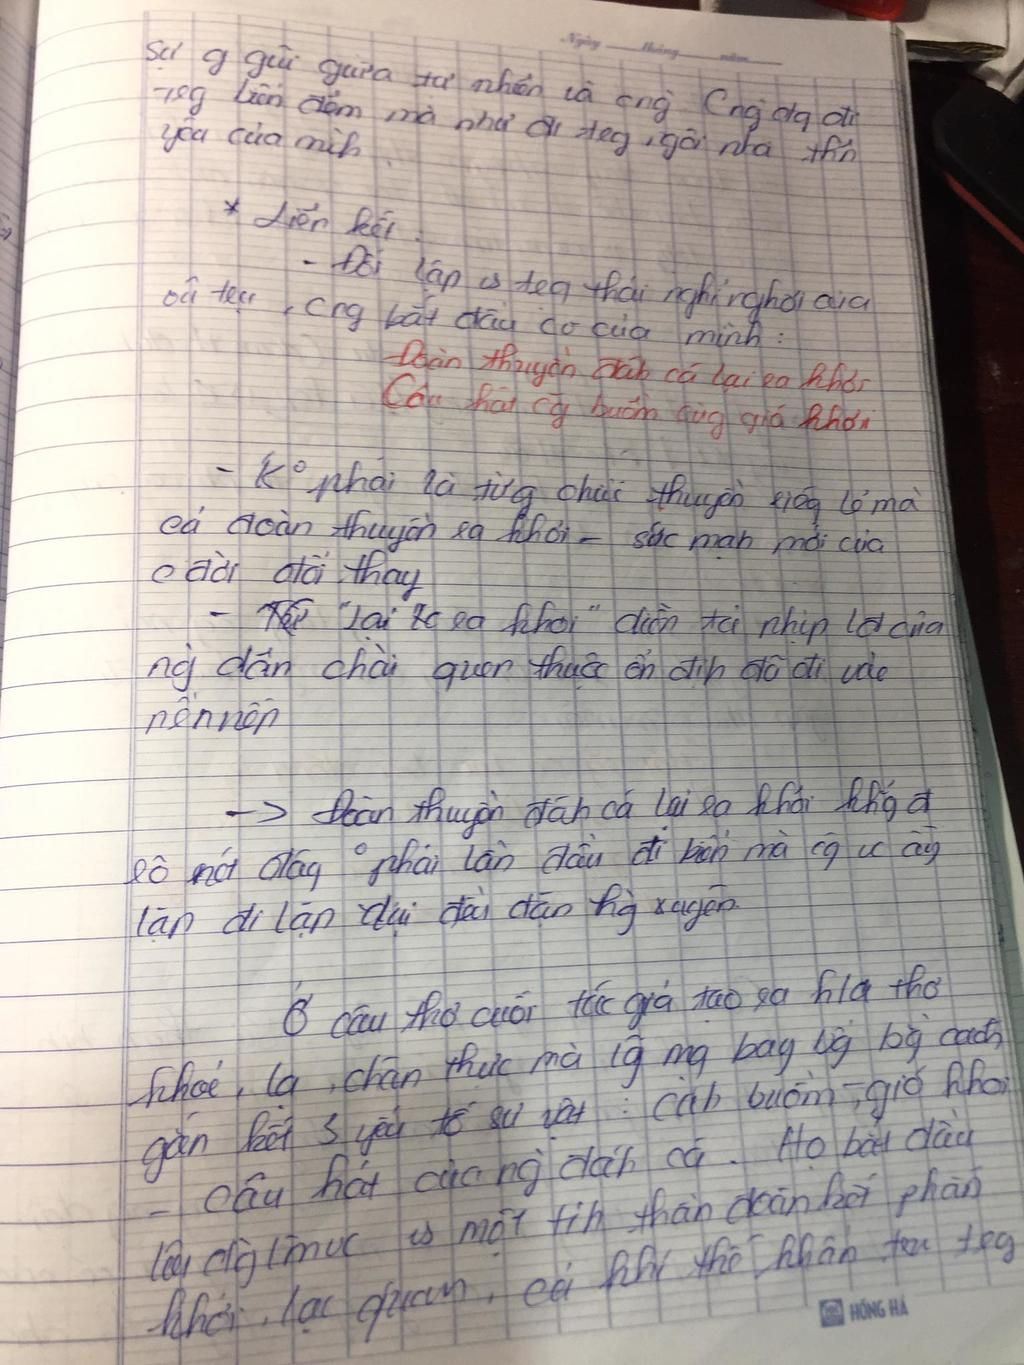 Ngày tháng năm
sự g gũi giữa tư nhiên và cng Cng đg đi
teg biển đêm mà như đi teg ngôi nhà thn
yêu của mình.
* Liên kết.
- Đối lập vs teg thái nghỉ nghơi của
vũ trụ, cng bắt đầu của mình:
Đoàn thuyền đáh cá lại ra khơi
Câu hát cg buồm cùg gió khơi
- K° phải là từg chiếc thuyền riêg lẻ mà
cả đoàn thuyền ra khơi - sức mạh mới của
c đời đổi thay
- "Lại ra khơi" diễn tả nhịp lđ của
ng dân chài quen thuộc ổn địh đã đi vào
nền nếp
-> Đoàn thuyền đáh cá lại ra khơi khg
° phải lần đầu đi biển mà cg vc ấy
lặp đi lặp lại đài dặn hg xuyên.
Ở câu thơ cuối tác giả tạo ra h/a thơ
khoẻ, lạ, chân thực mà lãg mạ bay bổg bằg cách
gắn kết 3 yếu tố sự vật: cáh buồm - gió khơi
- câu hát của ng đáh cá. Họ bắt đầu
vs một tih thần đoàn kết phấn
khởi, lạc quan, cả khí thế khẩn teg
HỒNG HÀ